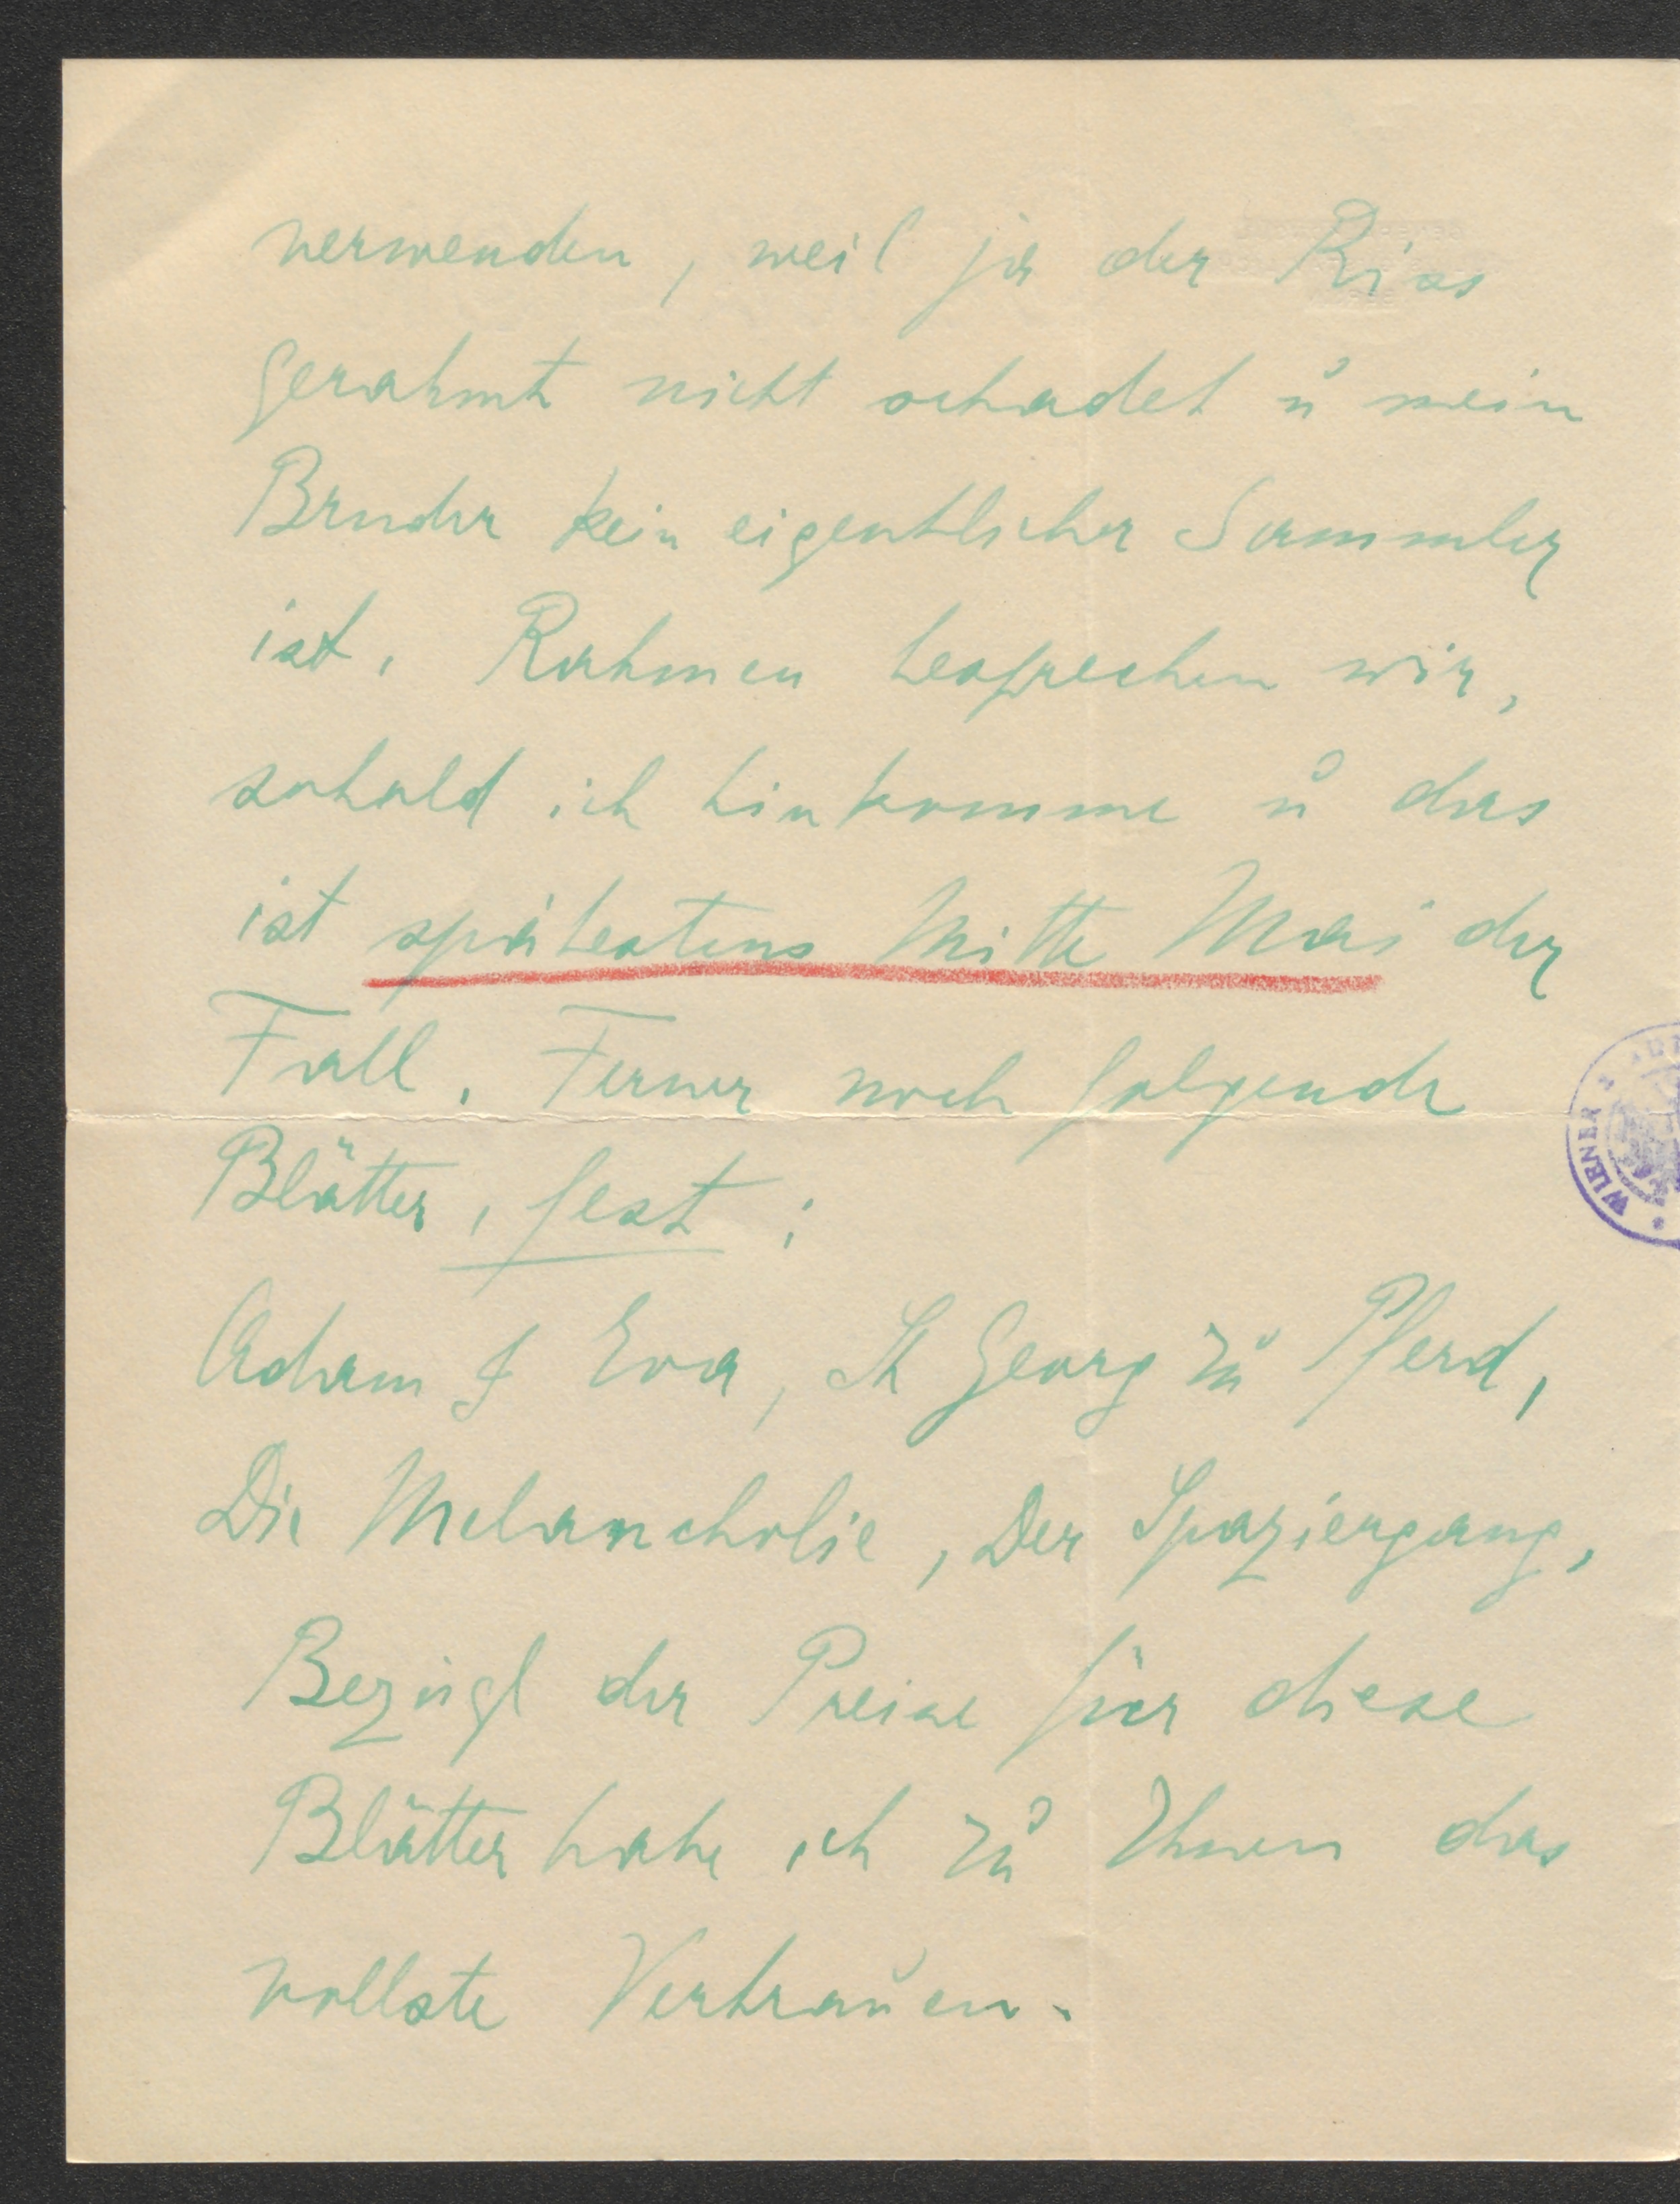 verwenden, weil ja der Riss
gerahmt nicht schadet u mein
Bruder kein eigentlicher Sammler
ist. Rahmen besprechen wir,
sobald ich hinkomme u das
ist spätestens Mitte Mai der
Fall. Ferner noch folgende
WIENER
Blätter, fest:
Adam & Eva, St Georg zu Pferd,
Die Melancholie, Der Spaziergang,
Bezügl der Preise für diese
Blätter habe ich zu Ihnen das
vollste Vertrauen.